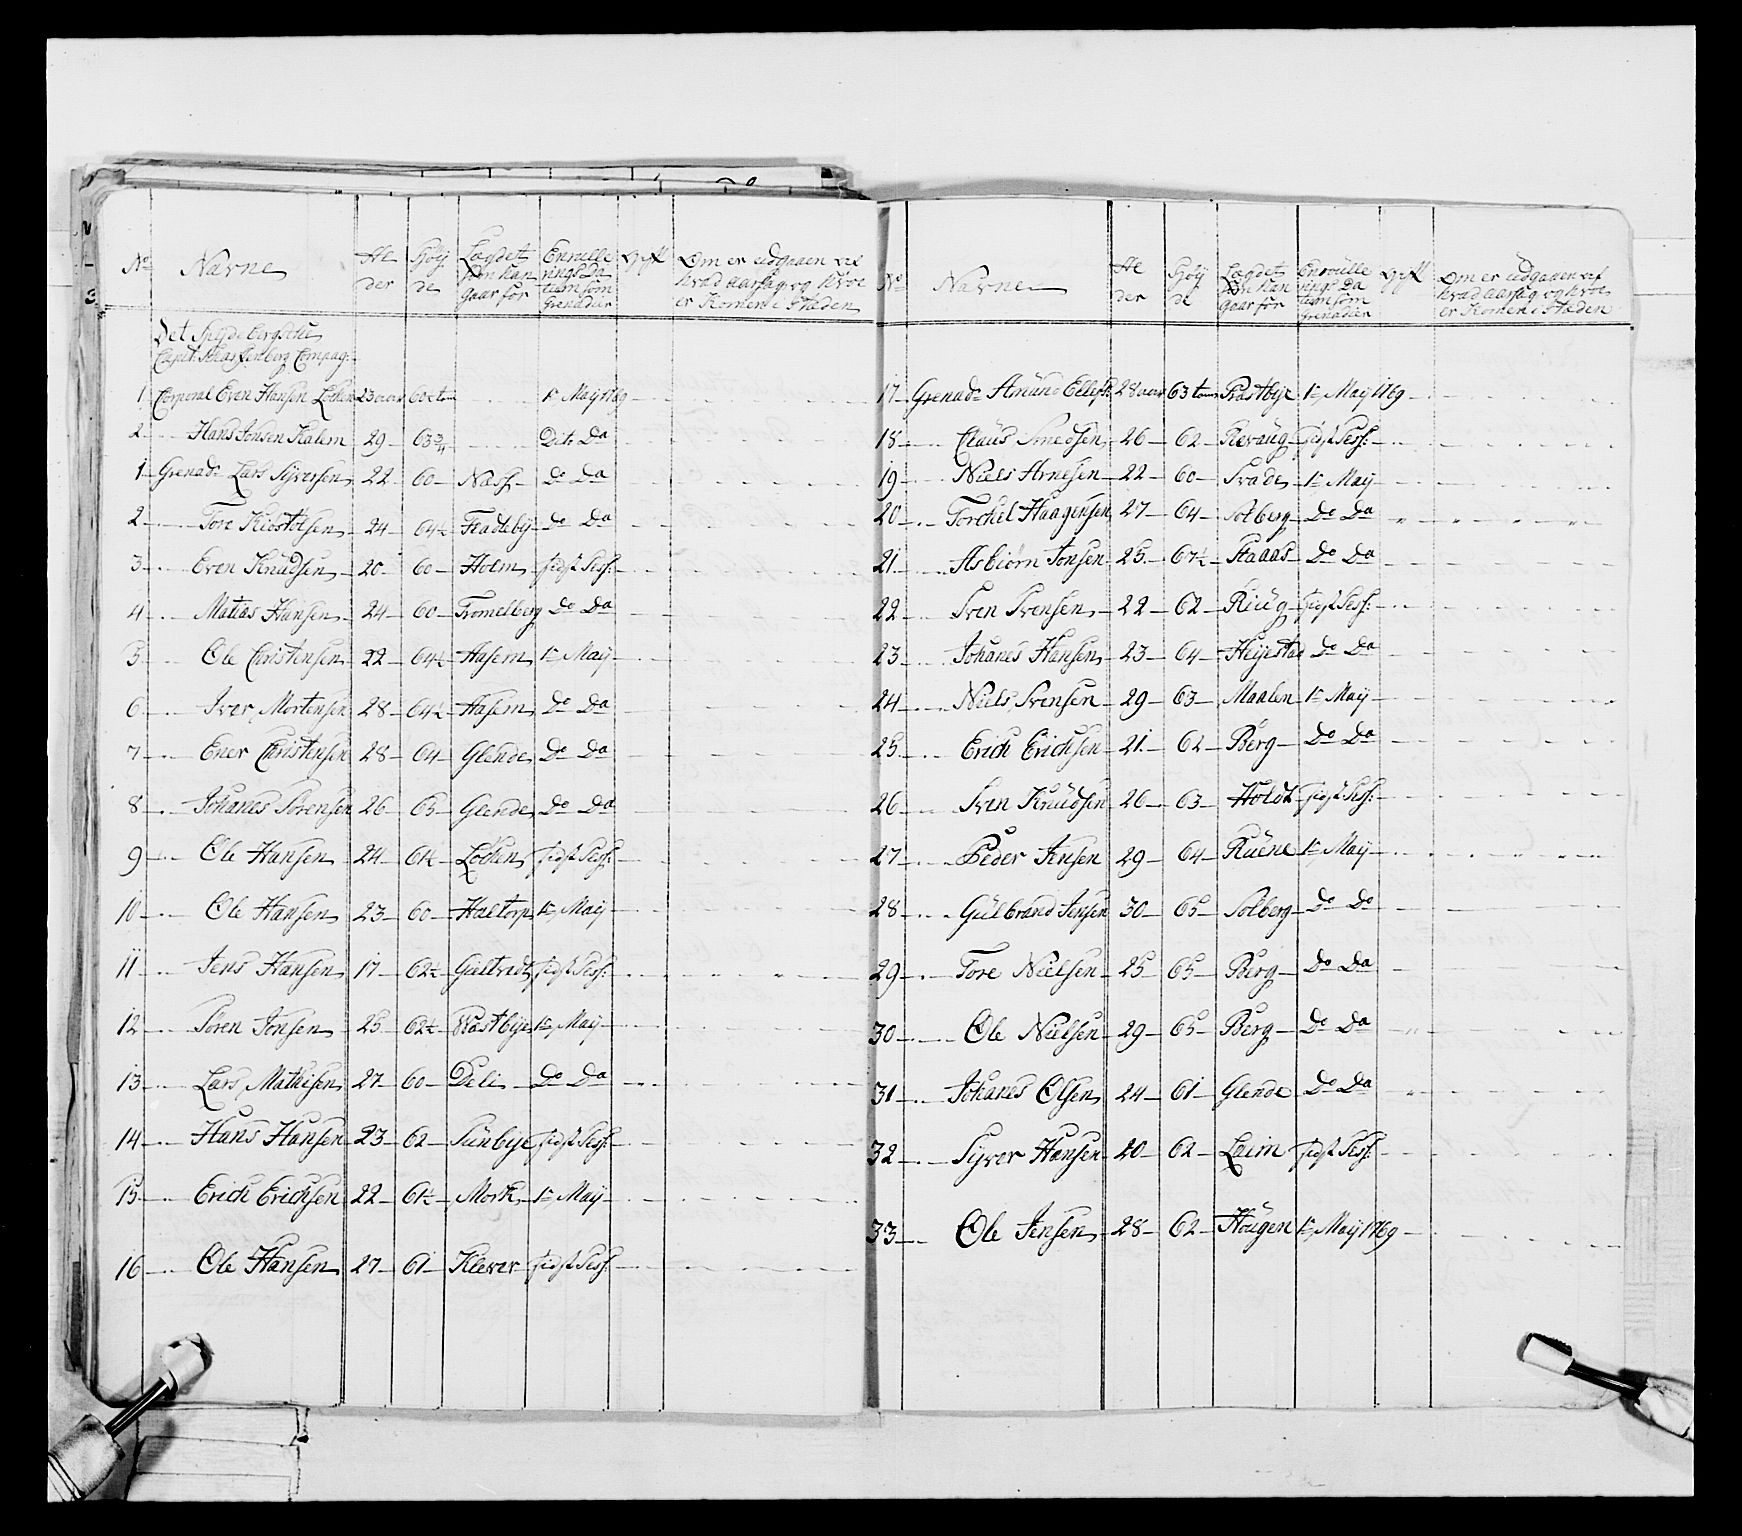 No Navne Al der Höy de Lægdet som han gaar for Enrulle rings Da tum som Grenadier Gift Om er udgaaen ved hvad aarsag og hvor er Komen i Stæden
Det Spydebergske
Capit: Compag:
1 Corporal Even Hansen Löchen 23 aar 60 1te May 1769
2 Hans Jonsen Kalem 29 63 3/4 Dito Da
1 Grenadr Lars Syversen 22 60 Næss Do Da
2 Tore Kiöstolsen 24 64½ Do Da
3 Even Knudsen 20 60 Holm sidst Sess:
4 Matias Hansen 24 60 Tromelberg Do Da
5 Ole Christensen 22 64½ Hasem 1te May
6 Iver Mortensen 28 64½ Hasem Do Da
7 Ener Christensen 28 64 Glende Do Da
8 Johanes Sörensen 26 65 Glende Do Da
9 Ole Hansen 24 61½ Löchen sidst Sess:
10 Ole Hansen 23 60 Haltorp 1te May
11 Jens Hansen 17 62½ sidst Sess:
12 Sören Jonsen 25 62½ Wæstbye 1te May
13 Lars Mathisen 27 60 Deli Do Da
14 Hans Hansen 23 62 Sünbye sidst Sess:
15 Erich Erichsen 22 61½ Mork 1te May
16 Ole Hansen 27 61 Klever sidst Sess:
No Navne Al der Höy de Lægdet som han gaar for Enroulle rings Da tum som Grenadier Gift Om er udgaaen ved hvad aarsag og hvor er Komen i Stæden
17 Grenadr Amund Ellefs: 28 aar 63 tom Præstbye 1te May 1769
18 Claus Smedsen 26 62 Revaug sidst Sess:
19 Niels Arnesen 22 60 Svade 1te May
20 Torchel Haagensen 27 64 Solberg Do Da
21 Asbiörn Jonsen 25 67½ Do Da
22 Sven Svensen 22 62 Riüg sidst Sess:
23 Johanes Hansen 23 64 Heyestad Do Da
24 Niels Svensen 29 63 Maalen 1te May
25 Erich Erichsen 21 62 Berg Do Da
26 Sven Knudsen 26 63 Holdt sidst Sess:
27 Peder Jensen 29 64 Ruüne 1te May
28 Gulbrand Jensen 30 65 Solberg Do Do
29 Tore Nielsen 25 65 Berg Do Da
30 Ole Nielsen 29 65 Berg Do Da
31 Johanes Olsen 24 61 Glende Do Da
32 Syver Hansen 20 62 Leim sidst Sess:
33 Ole Jensen 28 62 Hougen 1te May 1769